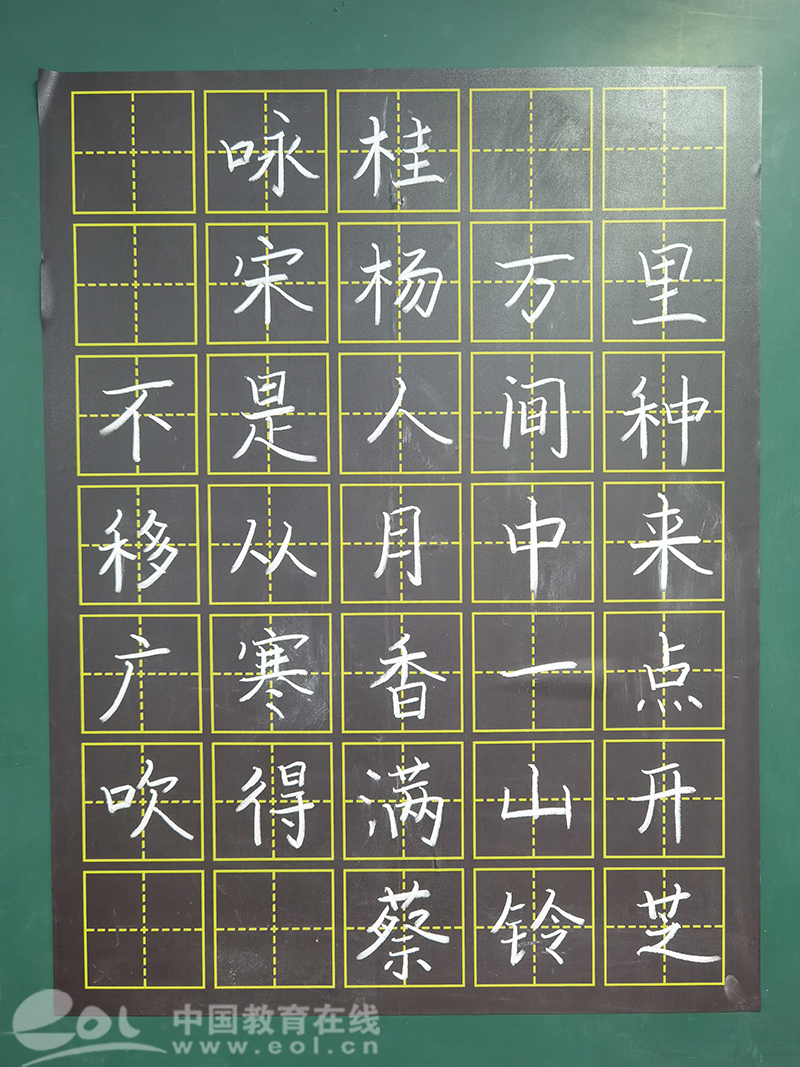 咏桂
宋杨万里
不是人间种
移从月中来
广寒香一点
吹得满山开
蔡铃芝
eol 中国教育在线
www.eol.cn